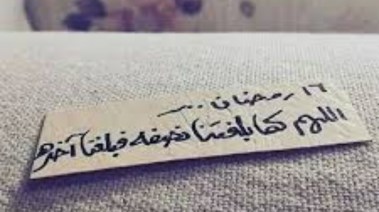 ١٦ رمضان ...
اللهم كما بلغتنا نصفه فبلغنا آخره